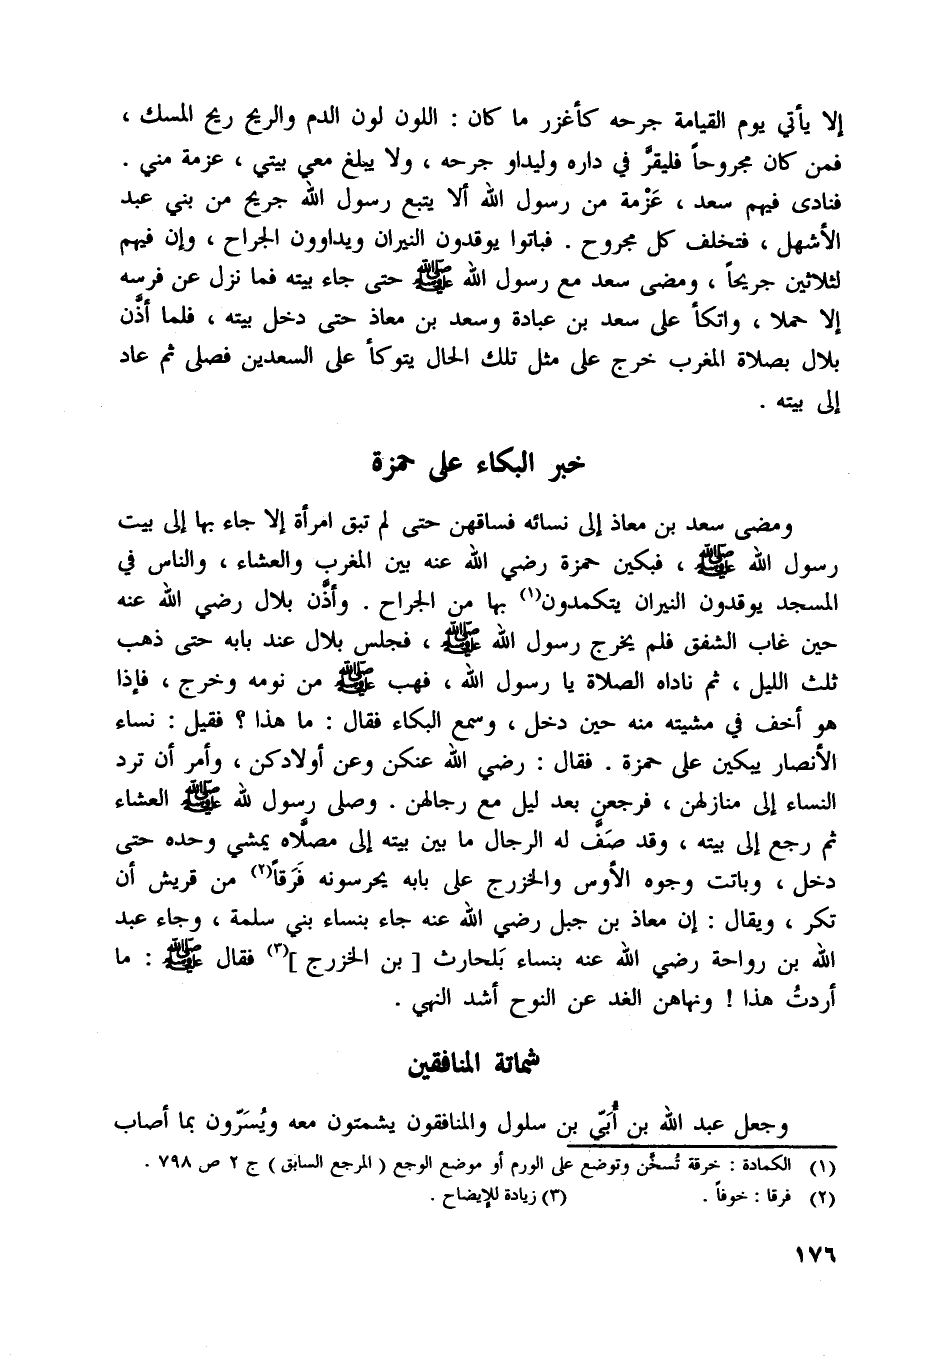 إلا يأتي يوم القيامة جرحه كأغزر ما كان : اللون لون الدم والريح ريح المسك ،
فمن كان مجروحاً فليقرَّ في داره وليداو جرحه ، ولا يبلغ معي بيتي ، عزمة مني .
فنادى فيهم سعد ، عَزْمة من رسول الله ألا يتبع رسول الله جريح من بني عبد
الأشهل ، فتخلف كل مجروح . فباتوا يوقدون النيران ويداوون الجراح ، وإن فيهم
لثلاثين جريحاً ، ومضى سعد مع رسول الله ﷺ حتى جاء بيته فما نزل عن فرسه
إلا حملا ، واتكأ على سعد بن عبادة وسعد بن معاذ حتى دخل بيته ، فلما أذَّن
بلال بصلاة المغرب خرج على مثل تلك الحال يتوكأ على السعدين فصلى ثم عاد
إلى بيته .
خبر البكاء على حمزة
ومضى سعد بن معاذ إلى نسائه فساقهن حتى لم تبق امرأة إلا جاء بها إلى بيت
رسول الله ﷺ ، فبكين حمزة رضي الله عنه بين المغرب والعشاء ، والناس في
المسجد يوقدون النيران يتكمدون(١) بها من الجراح . وأذَّن بلال رضي الله عنه
حين غاب الشفق فلم يخرج رسول الله ﷺ ، فجلس بلال عند بابه حتى ذهب
ثلث الليل ، ثم ناداه الصلاة يا رسول الله ، فهب ﷺ من نومه وخرج ، فإذا
هو أخف في مشيته منه حين دخل ، وسمع البكاء فقال : ما هذا ؟ فقيل : نساء
الأنصار يبكين على حمزة . فقال : رضي الله عنكن وعن أولادكن ، وأمر أن ترد
النساء إلى منازلهن ، فرجعن بعد ليل مع رجالهن . وصلى رسول لله ﷺ العشاء
ثم رجع إلى بيته ، وقد صَفَّ له الرجال ما بين بيته إلى مصلَّاه يمشي وحده حتى
دخل ، وباتت وجوه الأوس والخزرج على بابه يحرسونه فَرَقاً(٢) من قريش أن
تكر ، ويقال : إن معاذ بن جبل رضي الله عنه جاء بنساء بني سلمة ، وجاء عبد
الله بن رواحة رضي الله عنه بنساء بَلحارث [ بن الخزرج ](٣) فقال ﷺ : ما
أردتُ هذا ! ونهاهن الغد عن النوح أشد النهي .
شماتة المنافقين
وجعل عبد الله بن أُبَيّ بن سلول والمنافقون يشمتون معه ويُسَرّون بما أصاب
(١) الكمادة : خرقة تُسخَّن وتوضع على الورم أو موضع الوجع ( المرجع السابق ) ج ٢ ص ٧٩٨ .
(٢) فرقا : خوفاً . (٣) زيادة للإيضاح .
١٧٦